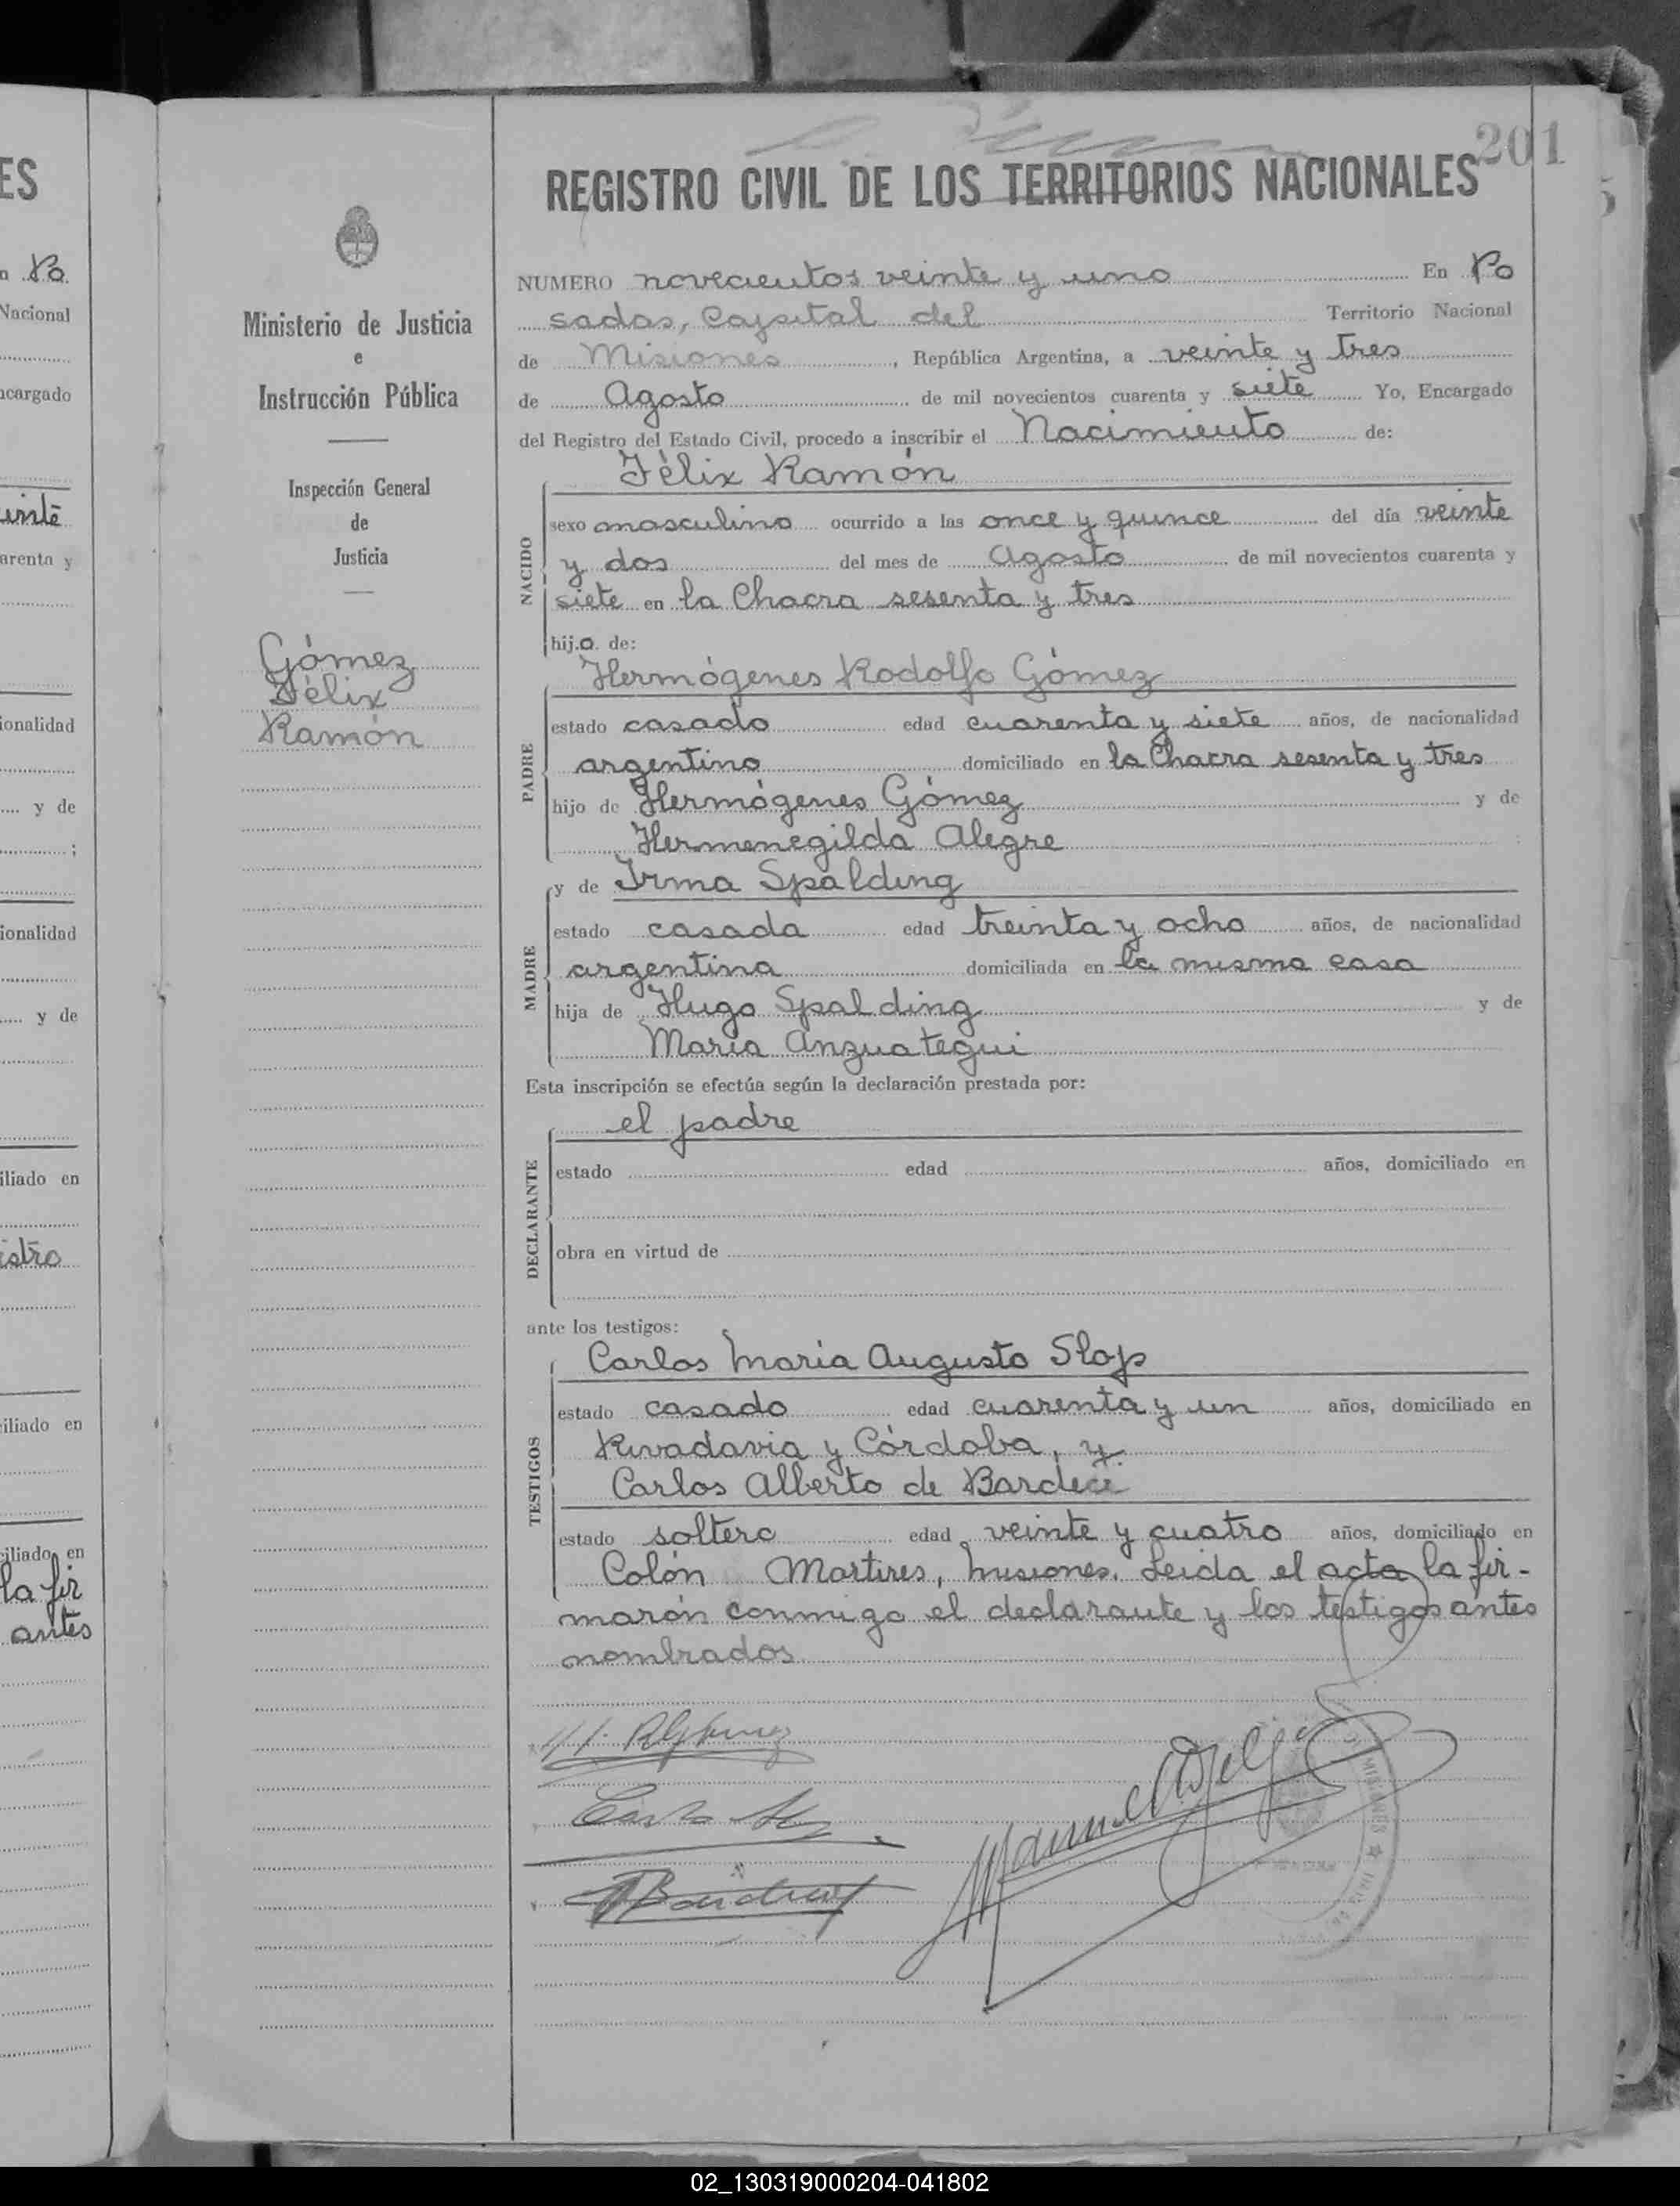 201
REGISTRO CIVIL DE LOS TERRITORIOS NACIONALES
Ministerio de Justicia
e
Instrucción Pública
Inspección General
de
Justicia
Gómez
Félix
Ramón
NUMERO novecientos veinte y uno En Po
sadas, Capital del Territorio Nacional
de Misiones, República Argentina, a veinte y tres
de Agosto de mil novecientos cuarenta y siete Yo, Encargado
del Registro del Estado Civil, procedo a inscribir el Nacimiento de:
Félix Ramón
NACIDO
sexo masculino ocurrido a las once y quince del día veinte
y dos del mes de Agosto de mil novecientos cuarenta y
siete en la Chacra sesenta y tres
hijo de:
Hermógenes Rodolfo Gómez
PADRE
estado casado edad cuarenta y siete años, de nacionalidad
argentino domiciliado en la Chacra sesenta y tres
hijo de Hermógenes Gómez y de
Hermenegilda Alegre
y de Irma Spalding
MADRE
estado casada edad treinta y ocho años, de nacionalidad
argentina domiciliada en la misma casa
hija de Hugo Spalding y de
María Anzuategui
Esta inscripción se efectúa según la declaración prestada por:
el padre
DECLARANTE
estado edad años, domiciliado en
obra en virtud de
ante los testigos:
Carlos María Augusto Slop
TESTIGOS
estado casado edad cuarenta y un años, domiciliado en
Rivadavia y Córdoba, y
Carlos Alberto de Bardeci
estado soltero edad veinte y cuatro años, domiciliado en
Colón Martires, Misiones. Leida el acta la fir-
marón conmigo el declarante y los testigos antes
nombrados
02_130319000204-041802